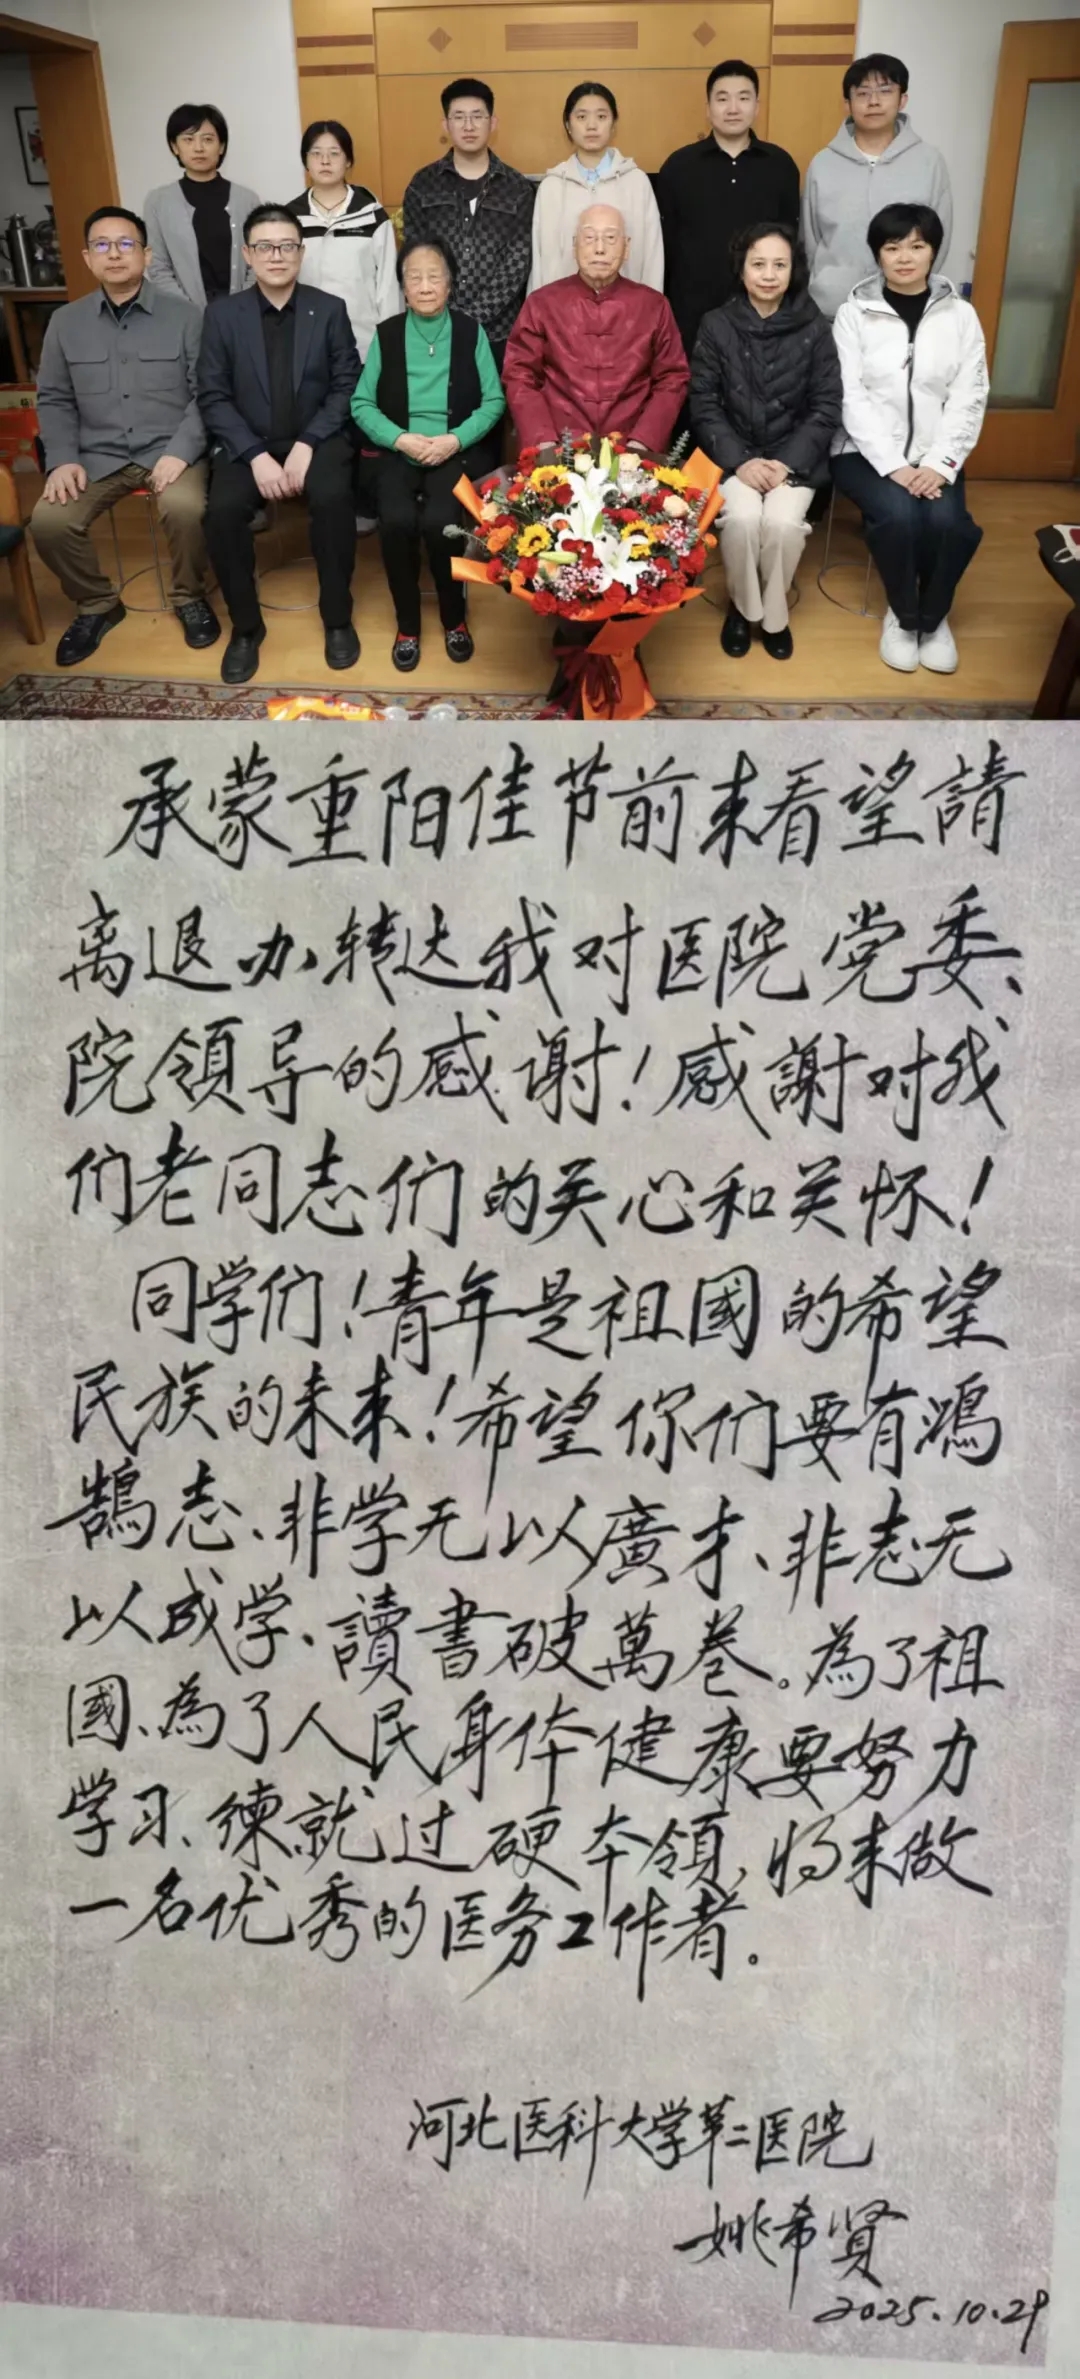 承蒙重阳佳节前来看望請
离退办转达我对医院党委、
院領导的感谢！感謝对我
们老同志们的关心和关怀！
同学们！青年是祖國的希望
民族的未来！希望你们要有鴻
鵠志、非学无以廣才、非志无
以成学、讀書破萬卷。為了祖
國、為了人民身体健康要努力
学习、練就过硬本領，将来做
一名优秀的医务工作者。
河北医科大学第二医院
姚希贤
2025.10.29